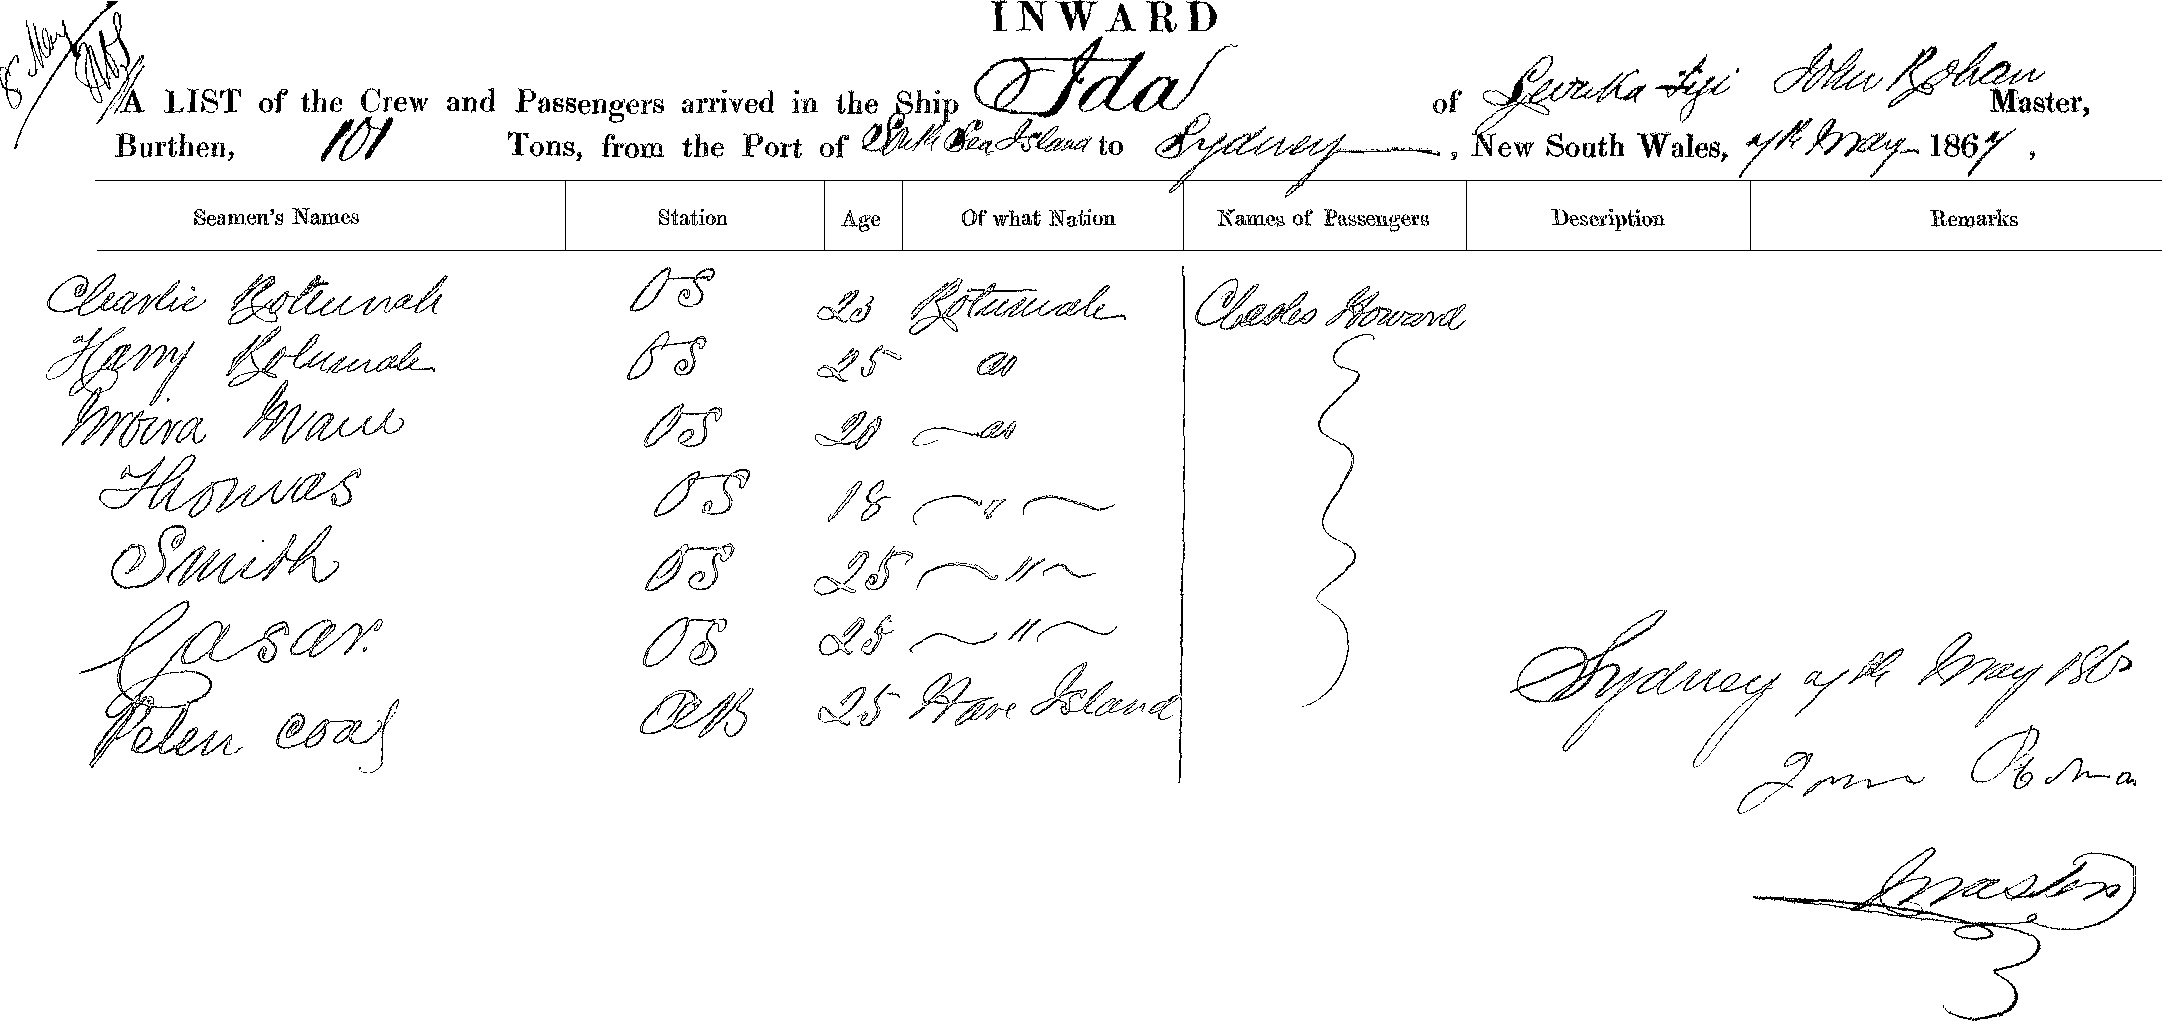 INWARD
8 May
A LIST of the Crew and Passengers arrived in the Ship Ida of Levuka Fiji John Rohan Master,
Burthen, 101 Tons, from the Port of South Sea Island to Sydney, New South Wales, 7th May 1867,
Seamen's Names Station Age Of what Nation Names of Passengers Description Remarks
Charlie Rotumah OS 23 Rotumah Charles Howard
Harry Rotumah OS 25 do
OS 20 do
Thomas OS 18 "
Smith OS 25 "
Casar. OS 28 "
Peter coal AB 25 Hare Island
Sydney 7th May 186
Master